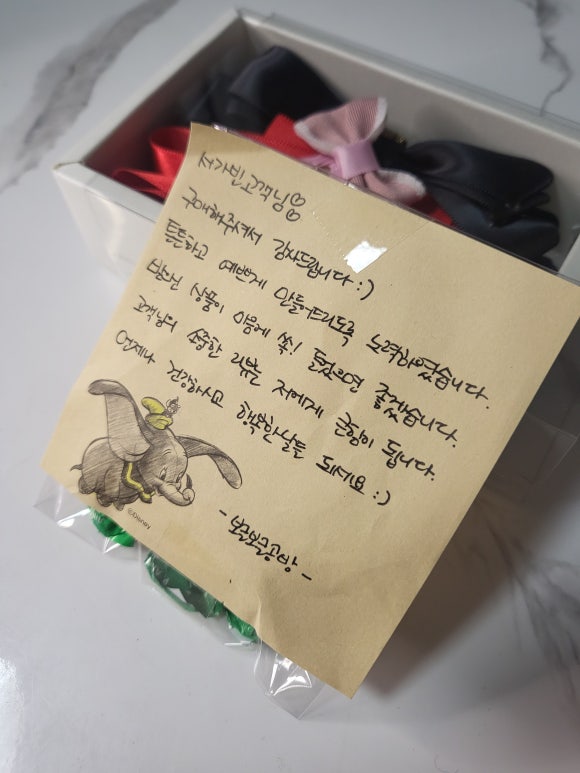 서가빈고객님♡
구매해주셔서 감사드립니다:)
튼튼하고 예쁘게 만들어드리도록 노력하였습니다.
받으신 상품이 마음에 쏙! 들었으면 좋겠습니다.
고객님의 소중한 리뷰는 저에게 큰힘이 됩니다.
언제나 건강하시고 행복한날들 되세요:)
©Disney